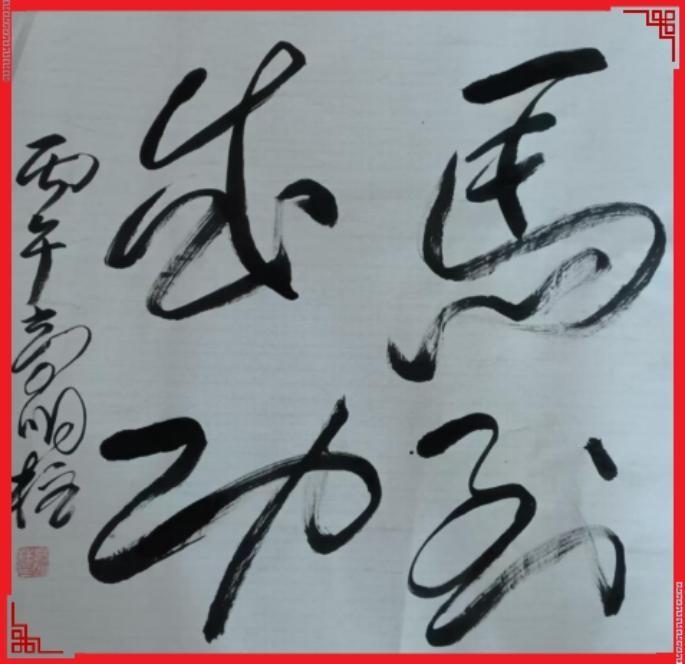 馬到
成功
丙午高明柱